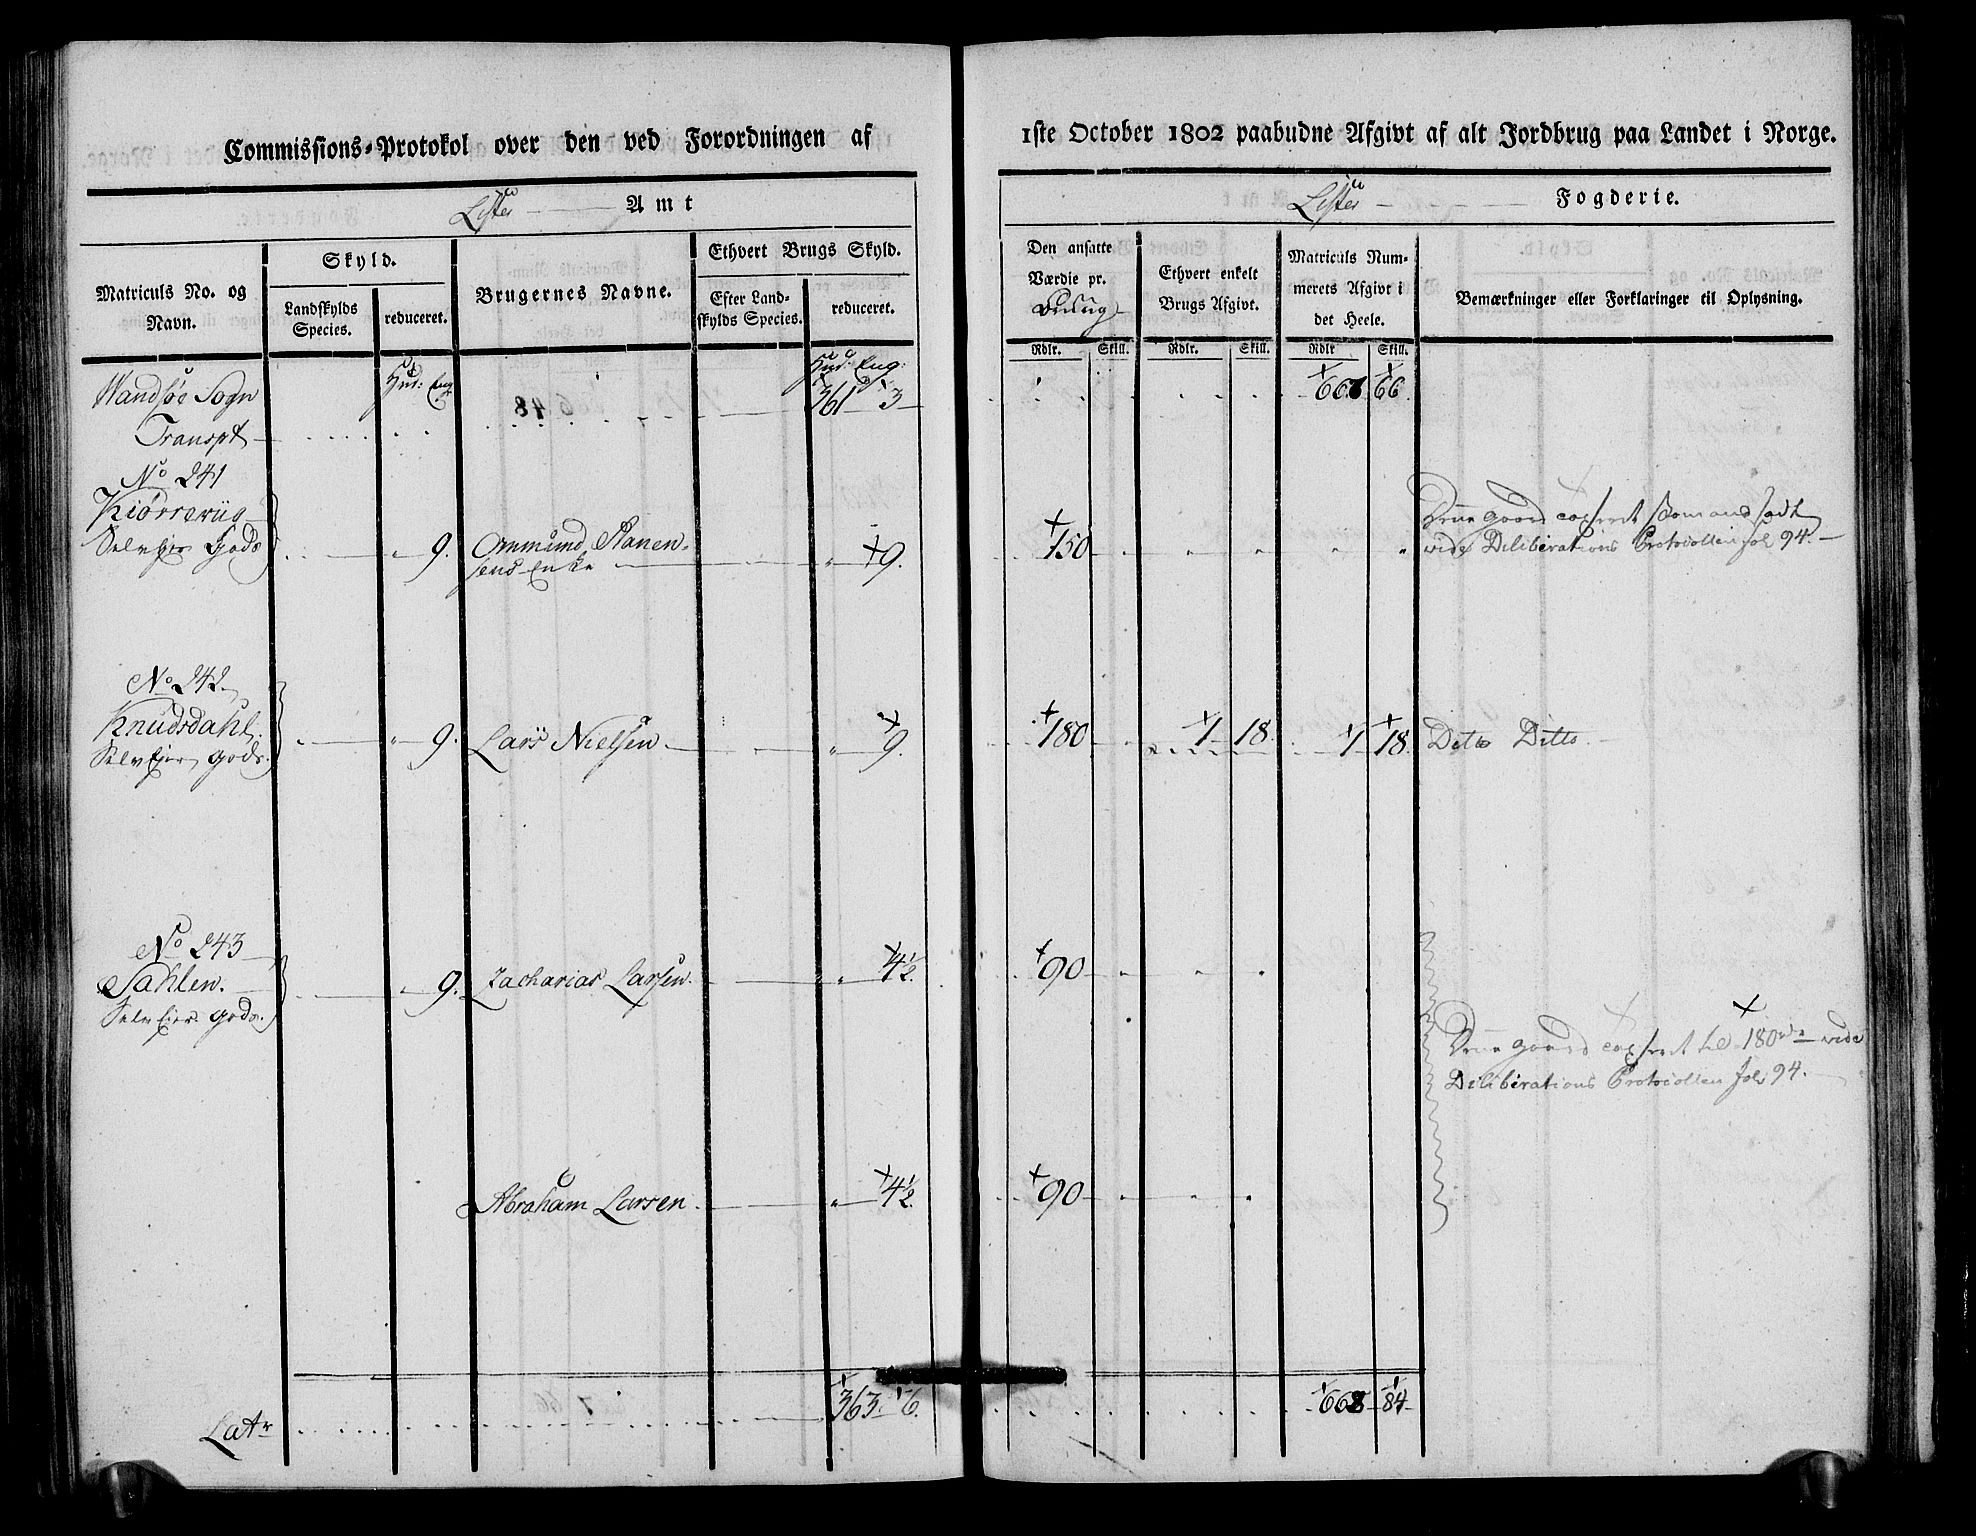 Commissions-Protokol over den ved Forordningen af
Lister Amt
Matriculs No. og Navn.
Skyld.
Landskylds Species.
reduceret.
Brugernes Navne.
Ethvert Brugs Skyld.
Efter Landskylds Species.
reduceret.
Hud: Eng
Hud: Eng:
Wandsøe Sogn
361 3
Transpt
No 241
Kiørrewiig
Selveyer Gods
9.
Ommund
sens Enke
9.
No 242
Knudsdahl.
Selveyer gods.
9.
Lars Nielsen
9.
No 243
Sahlen.
Selveyer gods.
9.
Zacharias Larsen.
4 1/2.
Abraham Larsen.
4 1/2.
Latr
363. 6.
1ste October 1802 paabudne Afgivt af alt Jordbrug paa Landet i Norge.
Lister Fogderie.
Den ansatte Værdie pr.
Ethvert enkelt Brugs Afgivt.
Matriculs Nummerets Afgivt i det Heele.
Bemærkninger eller Forklaringer til Oplysning.
Rdlr. Skill. Rdlr. Skill. Rdlr Skill.
66
150
Denne gaard taxeret som ansadt
vide Deliberations Protocollen fol 94.
180 1 18. 1 18. Ditto Ditto.
90
Denne gaard taxeret til 180 rd vide
Deliberations Protocollen fol 94.
90
668 84